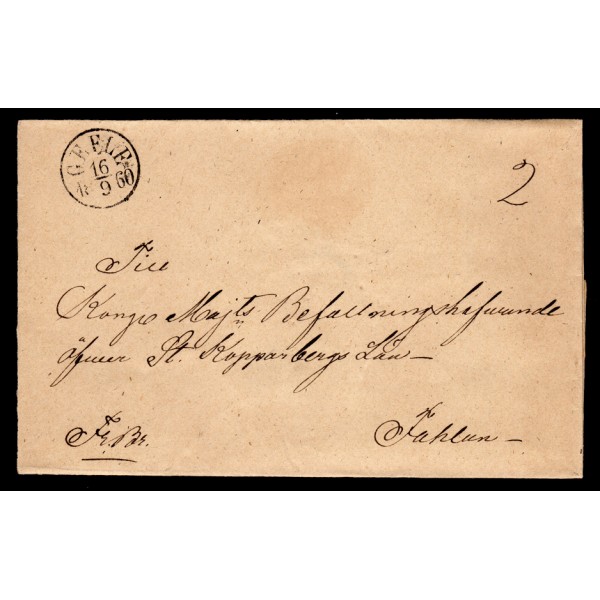 GEFLE
16
18 9 60
2
Till
Kongl Majts Befallningshafwande
öfwer St. Kopparbergs Län –
Fr. Br.
Fahlun –